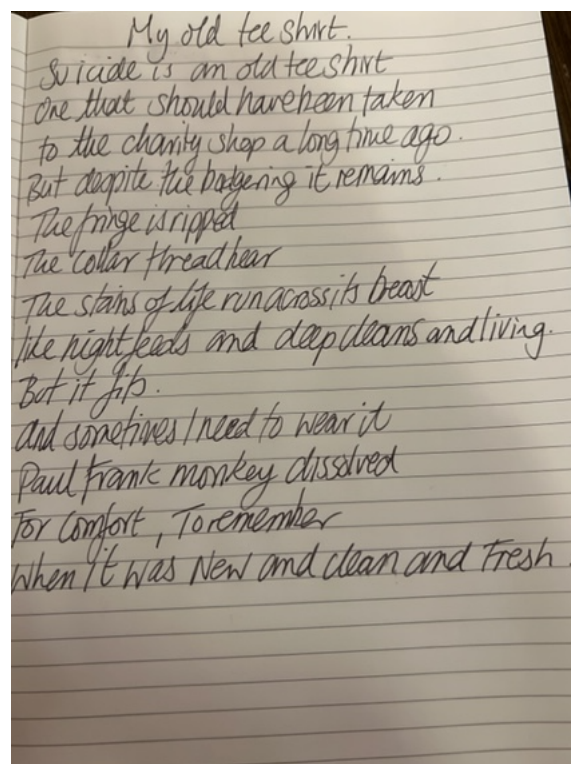 My old tee shirt.
Suicide is an old tee shirt
one that should have been taken
to the charity shop a long time ago.
But despite the badgering it remains.
The fringe is ripped
The collar threadbear
The stains of life run across its breast
like night feeds and deep cleans and living.
But it fits.
and sometimes I need to wear it
Paul Frank monkey dissolved
For comfort, To remember
When it was New and clean and Fresh